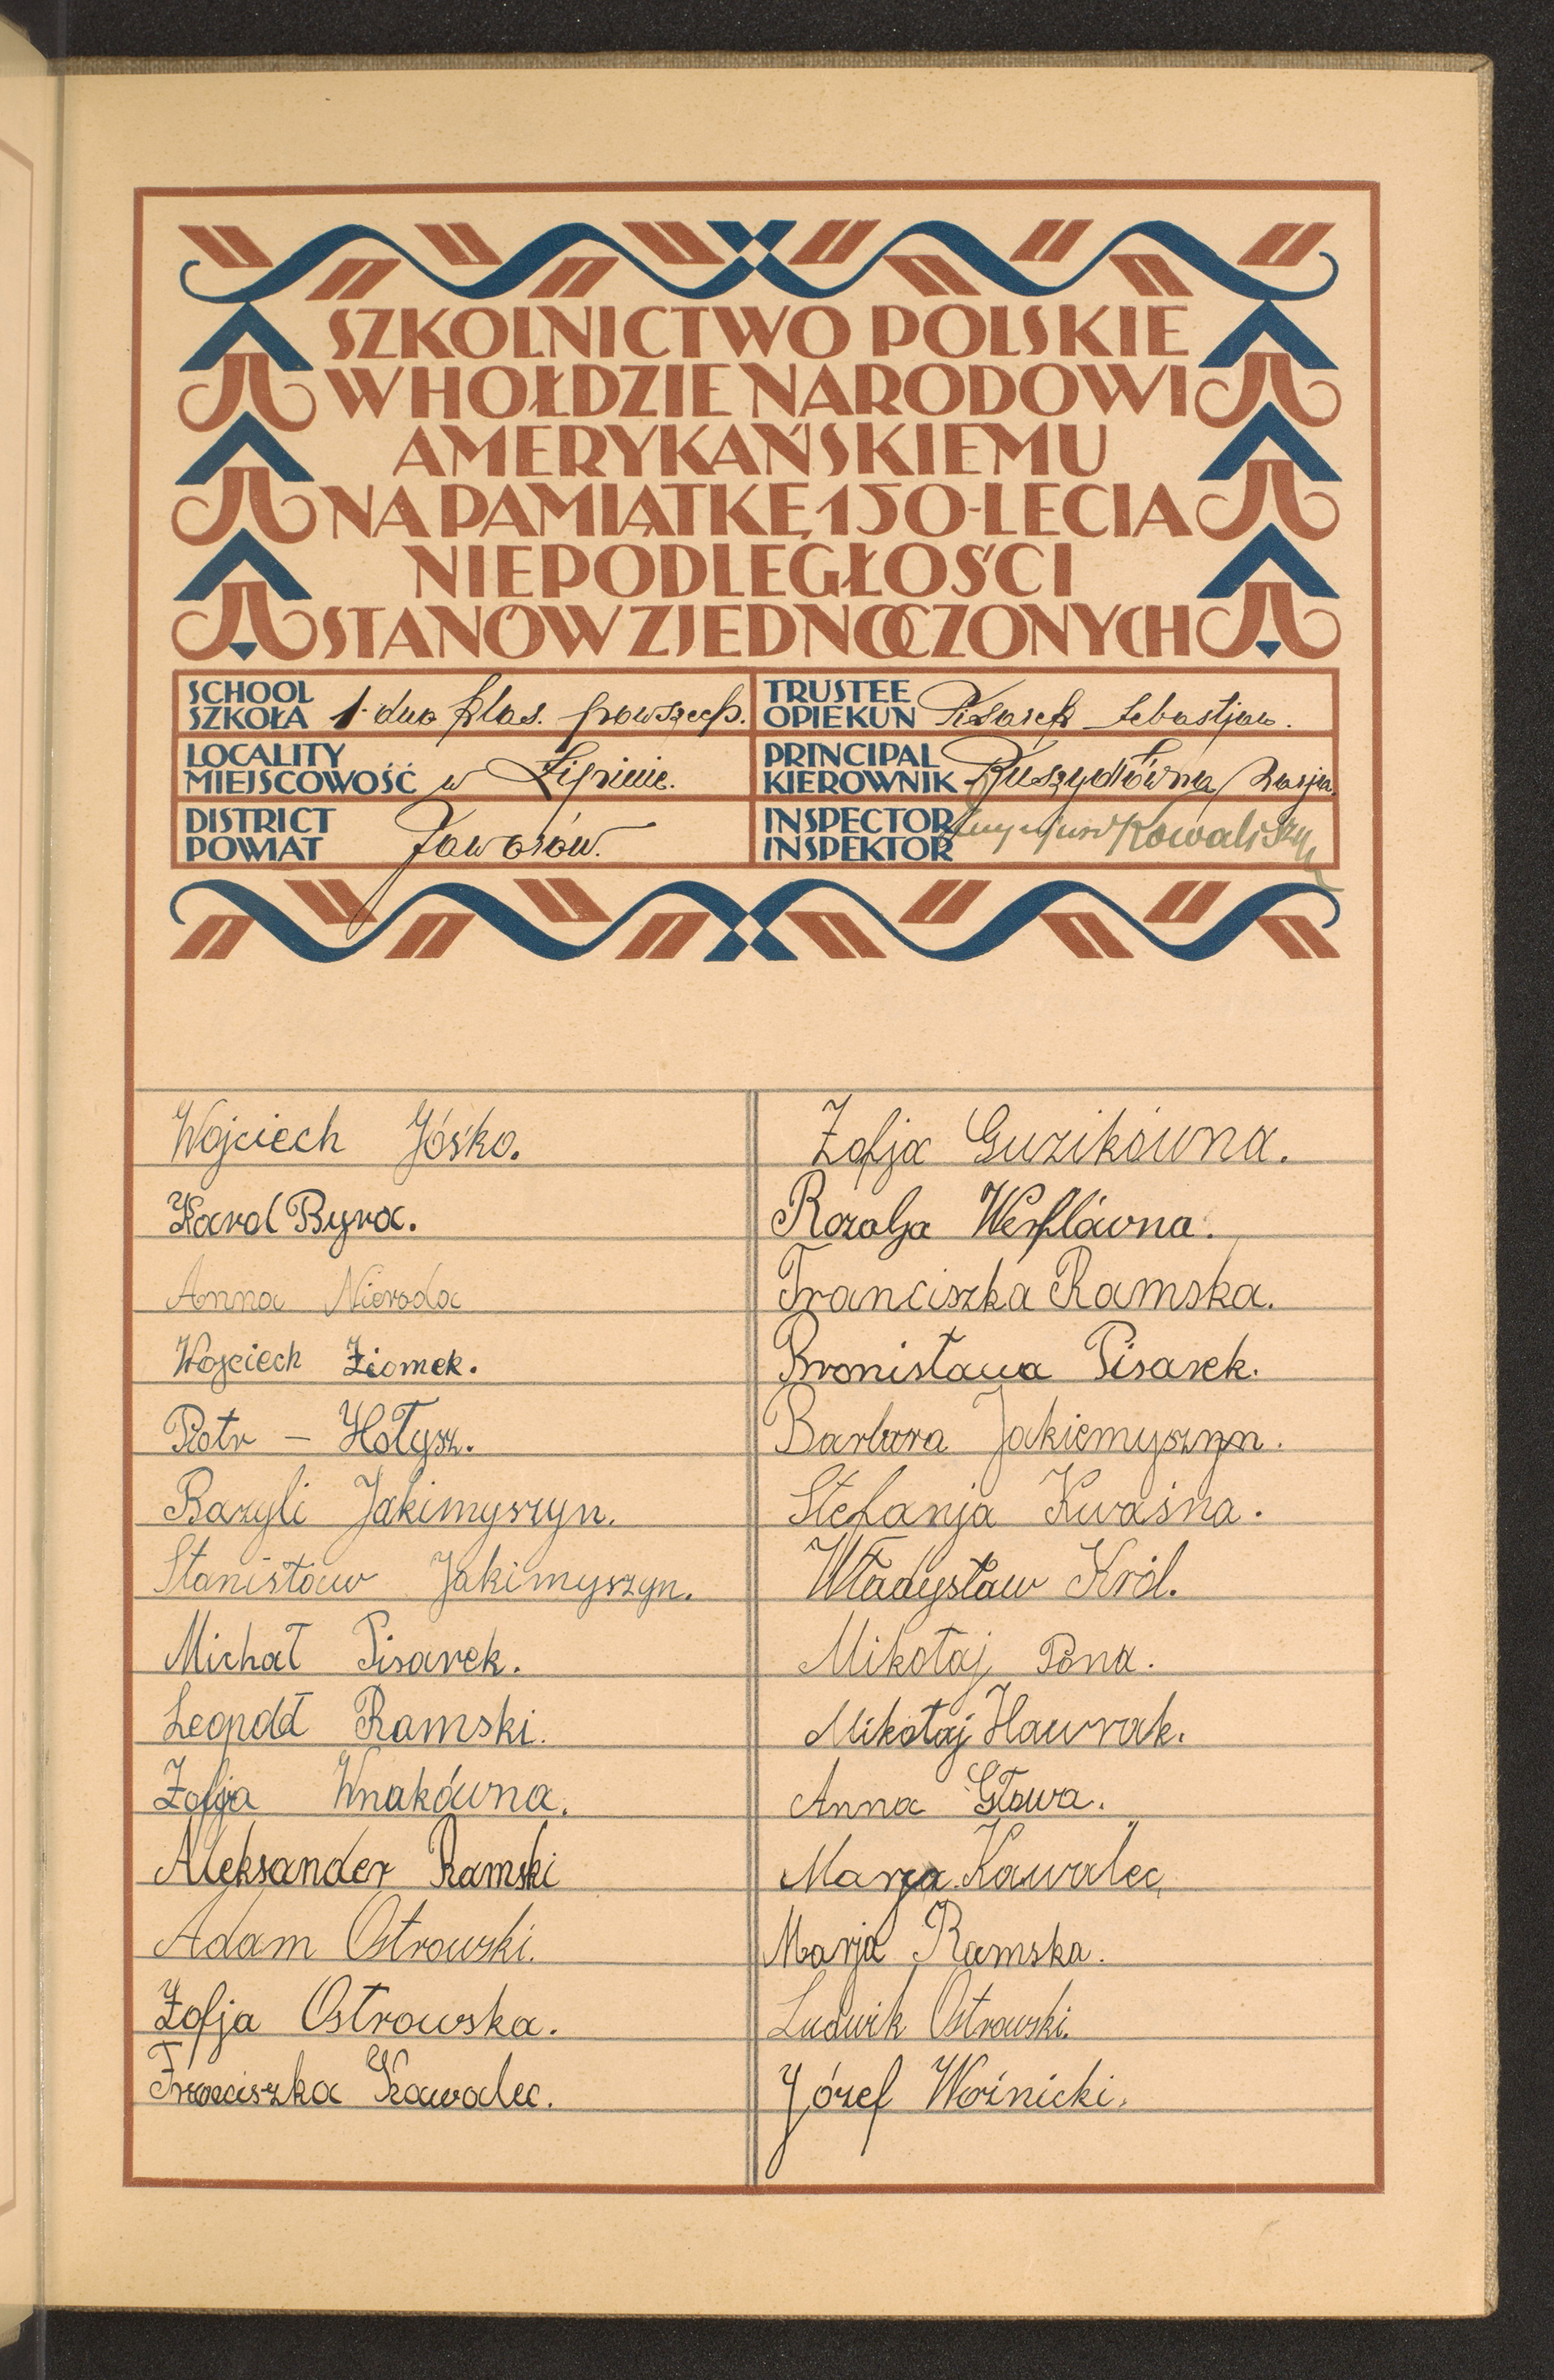 SZKOLNICTWO POLSKIE
W HOŁDZIE NARODOWI
AMERYKAŃSKIEMU
NA PAMIĄTKĘ 150-LECIA
NIEPODLEGŁOŚCI
STANÓW ZJEDNOCZONYCH
SCHOOL
SZKOŁA 1-dno klas. powszech.
LOCALITY
MIEJSCOWOŚĆ w Lipinie.
DISTRICT
POWIAT Jaworów.
TRUSTEE
OPIEKUN Pisarek Sebastjan.
PRINCIPAL
KIEROWNIK
INSPECTOR
INSPEKTOR Kowaliszyn
Wojciech Jóśko.
Karol Byra.
Anna Nieroda
Wojciech Ziomek.
Piotr - Hołysz.
Bazyli Jakimyszyn.
Stanisław Jakimyszyn.
Michał Pisarek.
Leopold Ramski.
Zofja Wnakówna.
Aleksander Ramski
Adam Ostrowski.
Zofja Ostrowska.
Franciszka Kawalec.
Zofja Guzikówna.
Rozalja
Franciszka Ramska.
Bronisława Pisarek.
Barbara Jakiemyszyn.
Stefanja Kwaśna.
Władysław Król.
Mikołaj Pona.
Mikołaj Hawrak.
Anna Głowa.
Marja Kawalec
Marja Ramska.
Ludwik Ostrowski.
Józef Woźnicki.